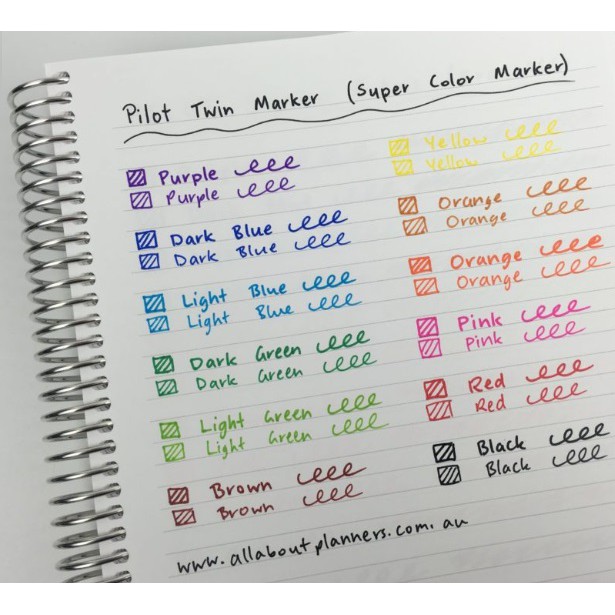 Pilot Twin Marker (Super Color Marker)
Purple
Purple
Dark Blue
Dark Blue
Light Blue
Light Blue
Dark Green
Dark Green
Light Green
Light Green
Brown
Brown
Yellow
Yellow
Orange
Orange
Orange
Orange
Pink
Pink
Red
Red
Black
Black
www.allaboutplanners.com.au